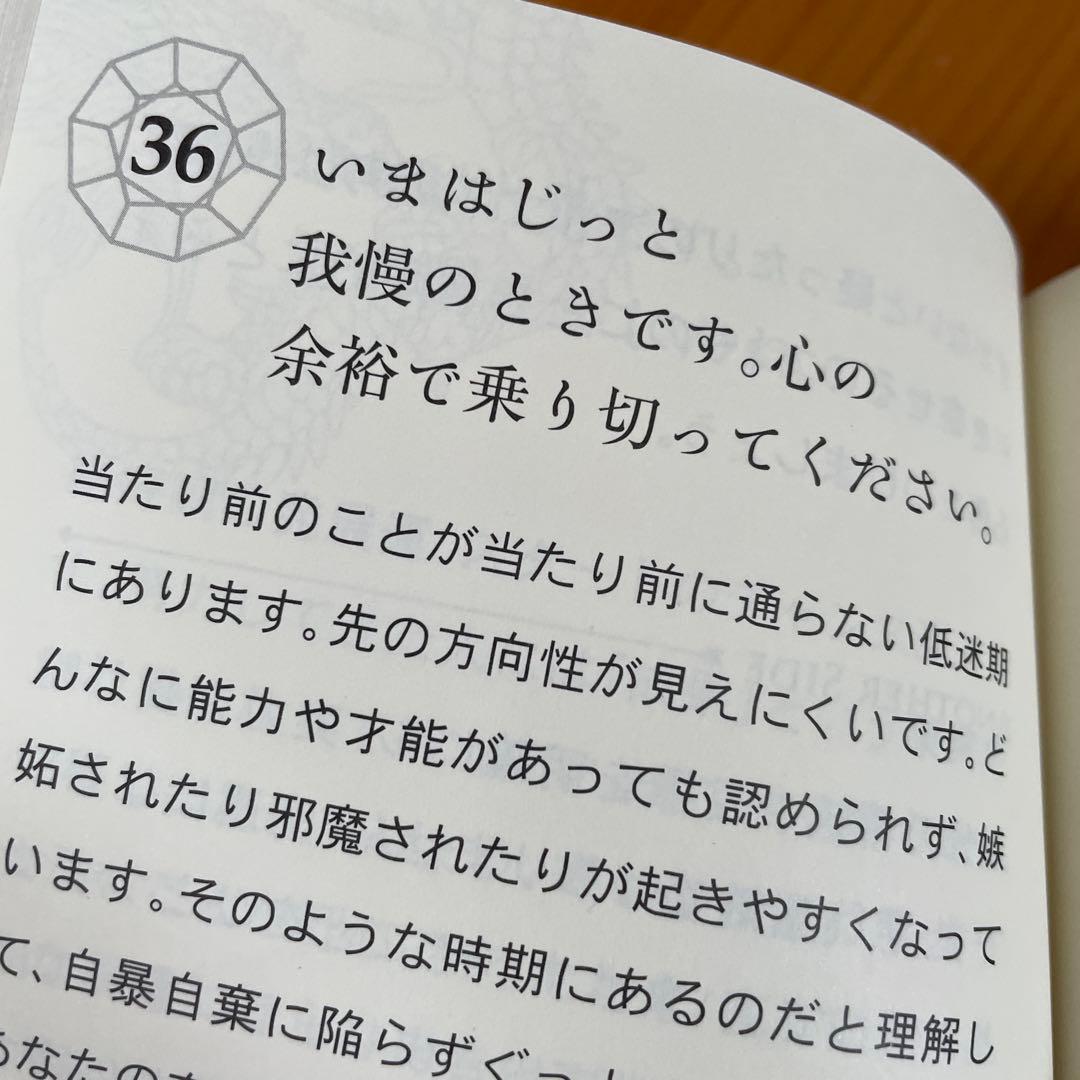 36
いまはじっと
我慢のときです。心の
余裕で乗り切ってください。
当たり前のことが当たり前に通らない低迷期
にあります。先の方向性が見えにくいです。ど
んなに能力や才能があっても認められず、嫉
妬されたり邪魔されたりが起きやすくなって
います。そのような時期にあるのだと理解し
て、自暴自棄に陥らずぐっと
あなたの